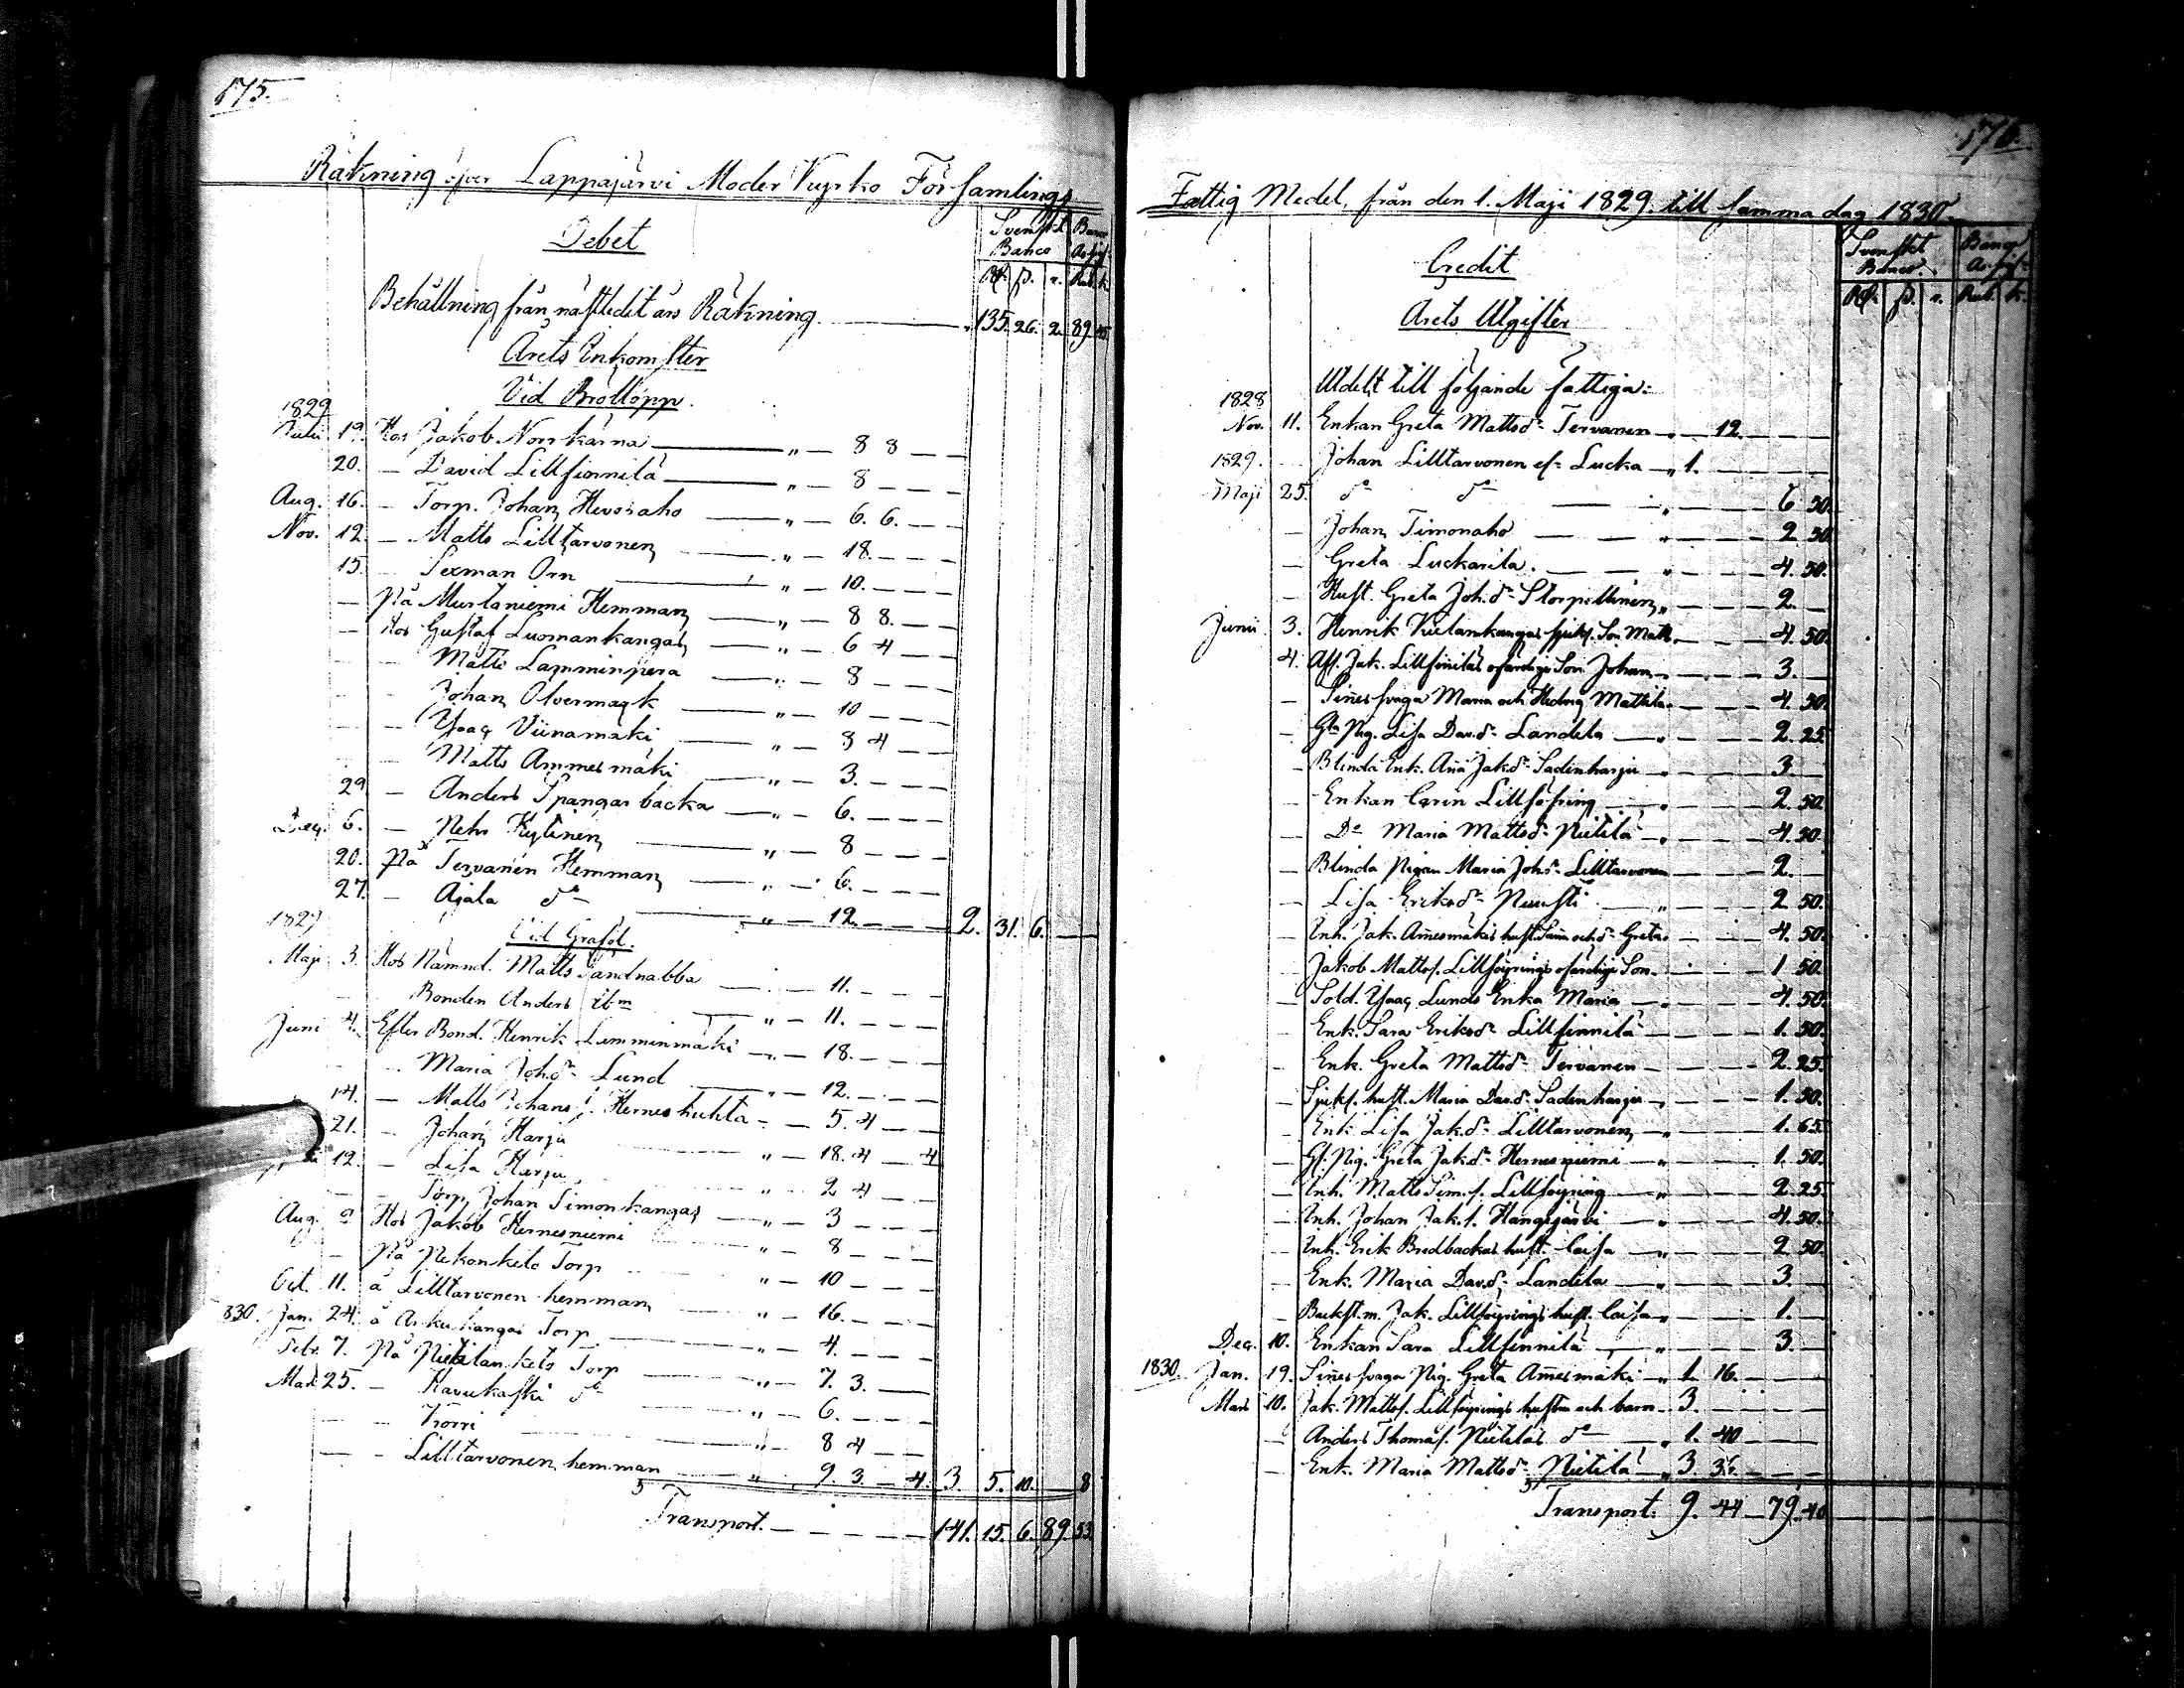 175.
Räkning öfver Lappajärvi Moder Kyrko Församlings
Debet
Svenskt Banco
Banco Assig.
Rdr. ß. r. Rub. k.
Behållning från nästledit års Räkning. — " 135. 26. 2. 89. 45
Årets Inkomster
Vid Bröllopp.
1829
Julii 19. Hos Jakob Norrkärna — " — 8 8 — —
20. — David Lillsinnilä — " — 8 — — —
Aug. 16. — Torp. Johan Hevosaho — " — 6. 6. — —
Nov. 12. — Matts Lilltarvonen — " — 18. — — —
15. Sexman Orn — " — 10. — — —
— På Murtaniemi Hemman — " — 8 8. — —
— Hos Gustaf Luomankangas — " — 6 4 — —
Matts Lamminpera — " — 8 — — —
Johan Olvermark — " — 10 — — —
Ysaac Viinamäki — " — 8 4 — —
Matts Ammesmäki — " — 3. — — —
29. — Anders Spangarbacka — " — 6. — — —
Dec. 6. — Petr Kytinen — " — 8 — — —
20. På Tervanen Hemman — " — 6. — — —
27. — Ajala do — " — 12. — — — 2. 31. 6. —
1829
Vid Grafol.
Maji 3. Hos Nämnd. Matts Sandnabba — " — 11. — — —
Bonden Anders ibm — " — 11. — — —
Juni 4. Efter Bond. Henrik Lamminmäki — " — 18. — — —
Maria Joh.dr Lund — " — 12. — — —
14. — Matts Johans s. Herneshuhta — 5. 4 — —
21. — Johan Harju — " — 18. 4 — 4
12. — Lisa Harju — " — 2 4 — —
Torp. Johan Simonkangas — " — 3 — —
Aug. 2 Hos Jakob Hernesniemi — " — 8 — —
— På Pekonketo Torp — " — 10 — —
Oct. 11. å Lilltarvonen hemman — " — 16. — — —
830. Jan. 24. å Arkukangas Torp — " — 4. — — —
Febr. 7. På Pietilänketo Torp — " — 7. 3. — —
Mars 25. — Havukaski do — " — 6. — — —
Korri — " — 8 4 — —
— Lilltarvonen hemman — " 9. 3. — 4. 3. 5. 10. — 8
Transport. — — — — — 141. 15. 6. 89. 53.
176.
Fattig Medel, från den 1. Maji 1829. till samma dag 1830.
Credit
Svenskt Banco.
Banco Assig.
Rdr. ß. r. Rub. k.
Årets Utgifter
Utdelt till följande fattiga:
1828
Nov. 11. Enkan Greta Mattsdr Tervanen " — 12. — — —
1829. Johan Lilltarvonen el. Lucka — " 1. — — —
Maji 25. do do — " — — 6 50.
— Johan Timonaho — " — — 2 50.
— Greta Luckarila. — " — — 4. 50.
— Hust. Greta Joh.dr Storpellinen " — — 2. —
Junii 3. Henrik Kielamkangas sjukl. Son Matts — — 4. 50.
4. Afl. Jak. Lillsinniläs ofärdige Son Johan — — 3. —
— Sinnessvaga Maria och Hedvig Mattila — — 4. 50.
— Gla Pig. Lisa Dav.dr Landela — " — — 2. 25.
— Blinda Enk. Ana Jak.dr Sadinharju — " — — 3. —
— Enkan Carin Lillsoyring — " — — 2. 50.
— Do Maria Mattsdr Pietilä — " — — 4. 50.
— Blinda Pigan Maria Johsdr Lilltarvonen — — 2. —
— Lisa Ericsdr Nuusti — " — — 2 50.
— Inh. Jak. Amesmäkis hust. Sana och dr Greta — — 4. 50.
— Jakob Mattss. Lillsoyrings ofärdige Son — — 1 50.
— Sold. Ysaac Lunds Enka Maria — " — — 4. 50.
— Enk. Sara Eriksdr Lillsinnilä — " — — 1. 50.
— Enk. Greta Mattsdr Tervanen — " — — 2. 25.
— Sjukl. hust. Maria Dav.dr Sadinharju — " — — 1. 50.
— Enk. Lisa Jak.dr Lilltarvonen — " — — 1. 65.
— Gl. Pig. Greta Jak.dr Hernesniemi — " — — 1. 50.
— Inh. Matts Sim.s. Lillsoyring — " — — 2. 25.
— Inh. Johan Jak.s. Hangasjärvi — " — — 4. 50.
— Inh. Erik Bredbackas hust. Caisa — " — — 2 50.
— Enk. Maria Dav.dr Landela — " — — 3. —
— Backst.m. Jak. Lillsoyrings hust. Caisa " — — 1. —
Dec. 10. Enkan Sara Lillsinnilä — " — — 3. —
1830 Jan. 19. Sinnessvaga Pig. Greta Amesmäki — " 1. 16. — —
Mars 10. Jak. Mattss. Lillsoyrings hustru och barn — 3. — — —
— Anders Thomass. Pietiläs do — " 1. 40 — —
— Enk. Maria Mattsdr Pietilä — " 3. 36. — —
Transport: 9. 44 — 79. 40